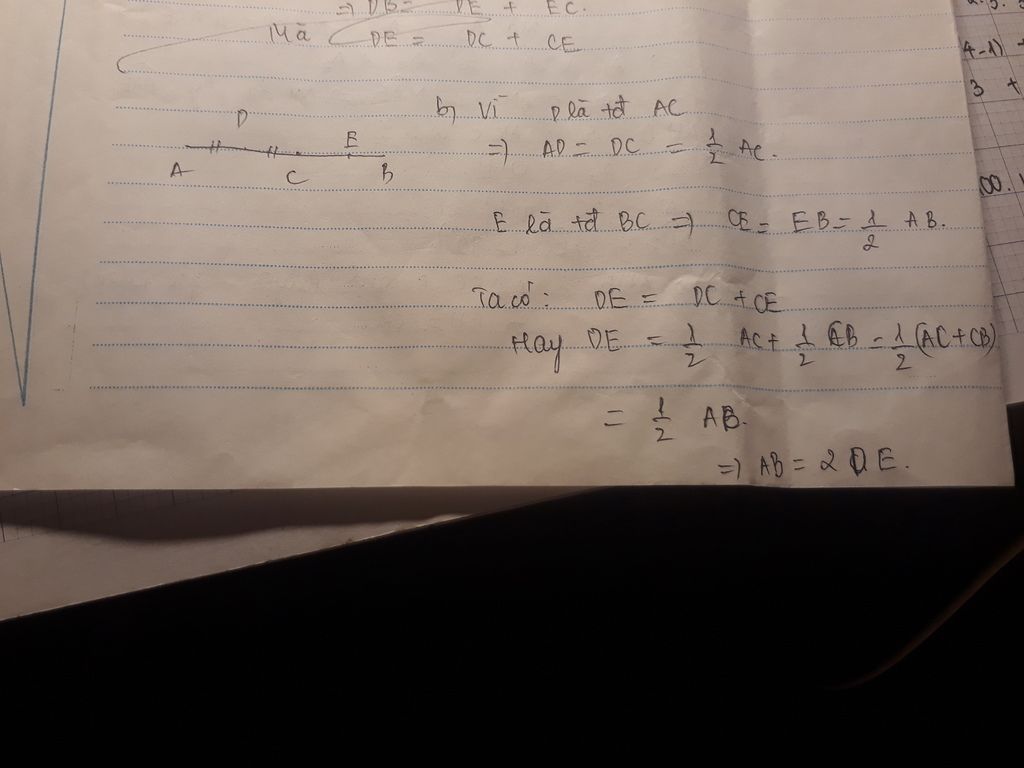 =) DB = DE + EC.
Mà DE = DC + CE
b, Vì D là tđ AC
=) AD = DC = 1/2 AC.
D
E
A
C
B
E là tđ BC =) CE = EB = 1/2 AB.
Ta có: DE = DC + CE
Hay DE = 1/2 AC + 1/2 CB = 1/2 (AC + CB)
= 1/2 AB.
=) AB = 2 DE.
4-1)
3 +
00.